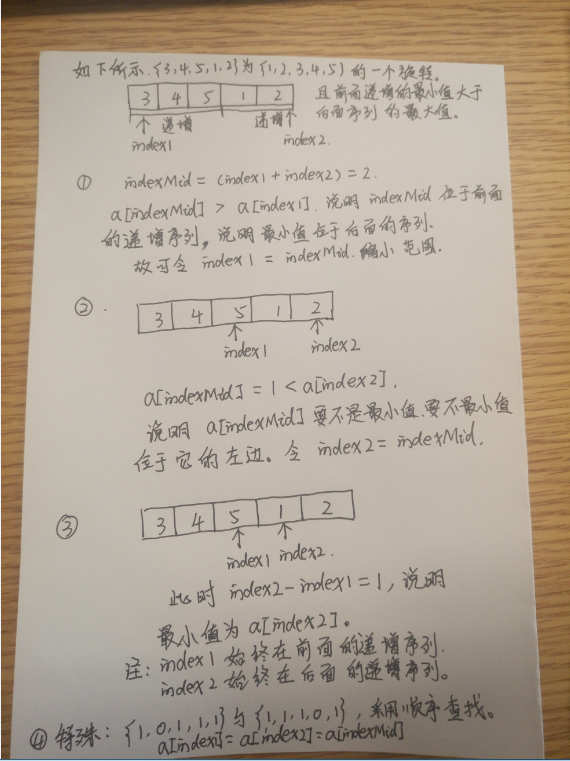 如下所示.{3,4,5,1,2}为{1,2,3,4,5}的一个旋转。
3 4 5 1 2
且前面递增的最小值大于
后面序列的最大值。
递增 递增
index1 index2.
① indexMid = (index1 + index2) = 2.
a[indexMid] > a[index1]. 说明 indexMid 位于前面
的递增序列, 说明最小值位于后面的序列.
故可令 index1 = indexMid. 缩小范围.
②.
3 4 5 1 2
index1 index2
a[indexMid] = 1 < a[index2],
说明 a[indexMid] 要不是最小值.要不最小值
位于它的左边。令 index2 = indexMid.
③
3 4 5 1 2
index1 index2.
此时 index2 - index1 = 1, 说明
最小值为 a[index2]。
注: index1 始终在前面的递增序列.
index2 始终在后面的递增序列。
④ 特殊: {1,0,1,1,1}与{1,1,1,0,1}, 采用顺序查找。
a[index1] = a[index2] = a[indexMid]